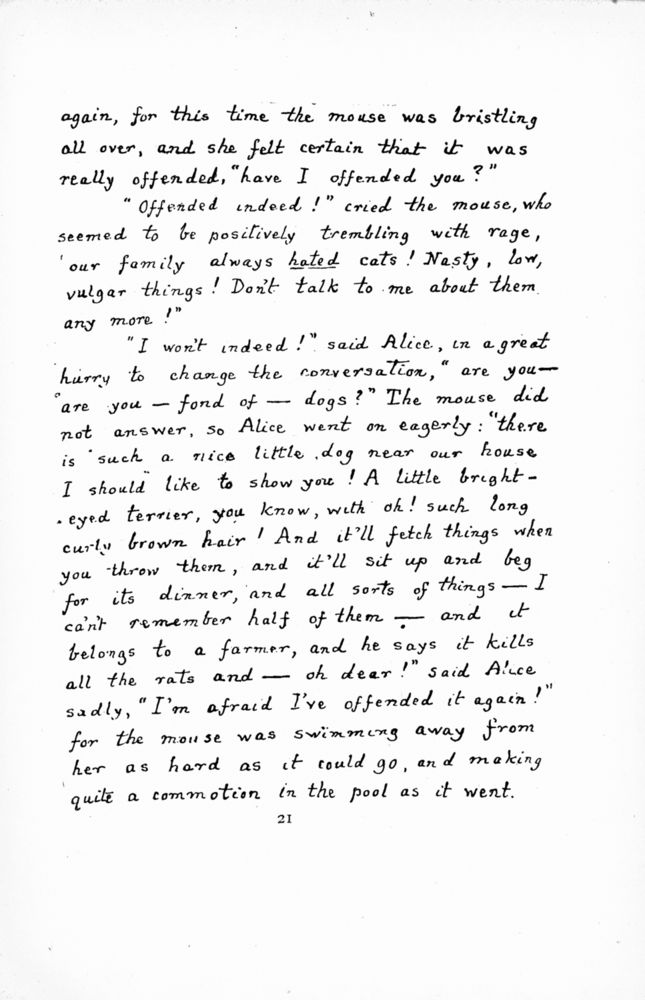 again, for this time the mouse was bristling
all over, and she felt certain that it was
really offended, "have I offended you?"
"Offended indeed!" cried the mouse, who
seemed to be positively trembling with rage,
"our family always hated cats! Nasty, low,
vulgar things! Don't talk to me about them
any more!"
"I won't indeed!" said Alice, in a great
hurry to change the conversation, "are you—
are you — fond of — dogs?" The mouse did
not answer, so Alice went on eagerly: "there
is such a nice little dog near our house
I should like to show you! A little bright-
eyed terrier, you know, with oh! such long
curly brown hair! And it'll fetch things when
you throw them, and it'll sit up and beg
for its dinner, and all sorts of things — I
can't remember half of them — and it
belongs to a farmer, and he says it kills
all the rats and — oh dear!" said Alice
sadly, "I'm afraid I've offended it again!"
for the mouse was swimming away from
her as hard as it could go, and making
quite a commotion in the pool as it went.
21